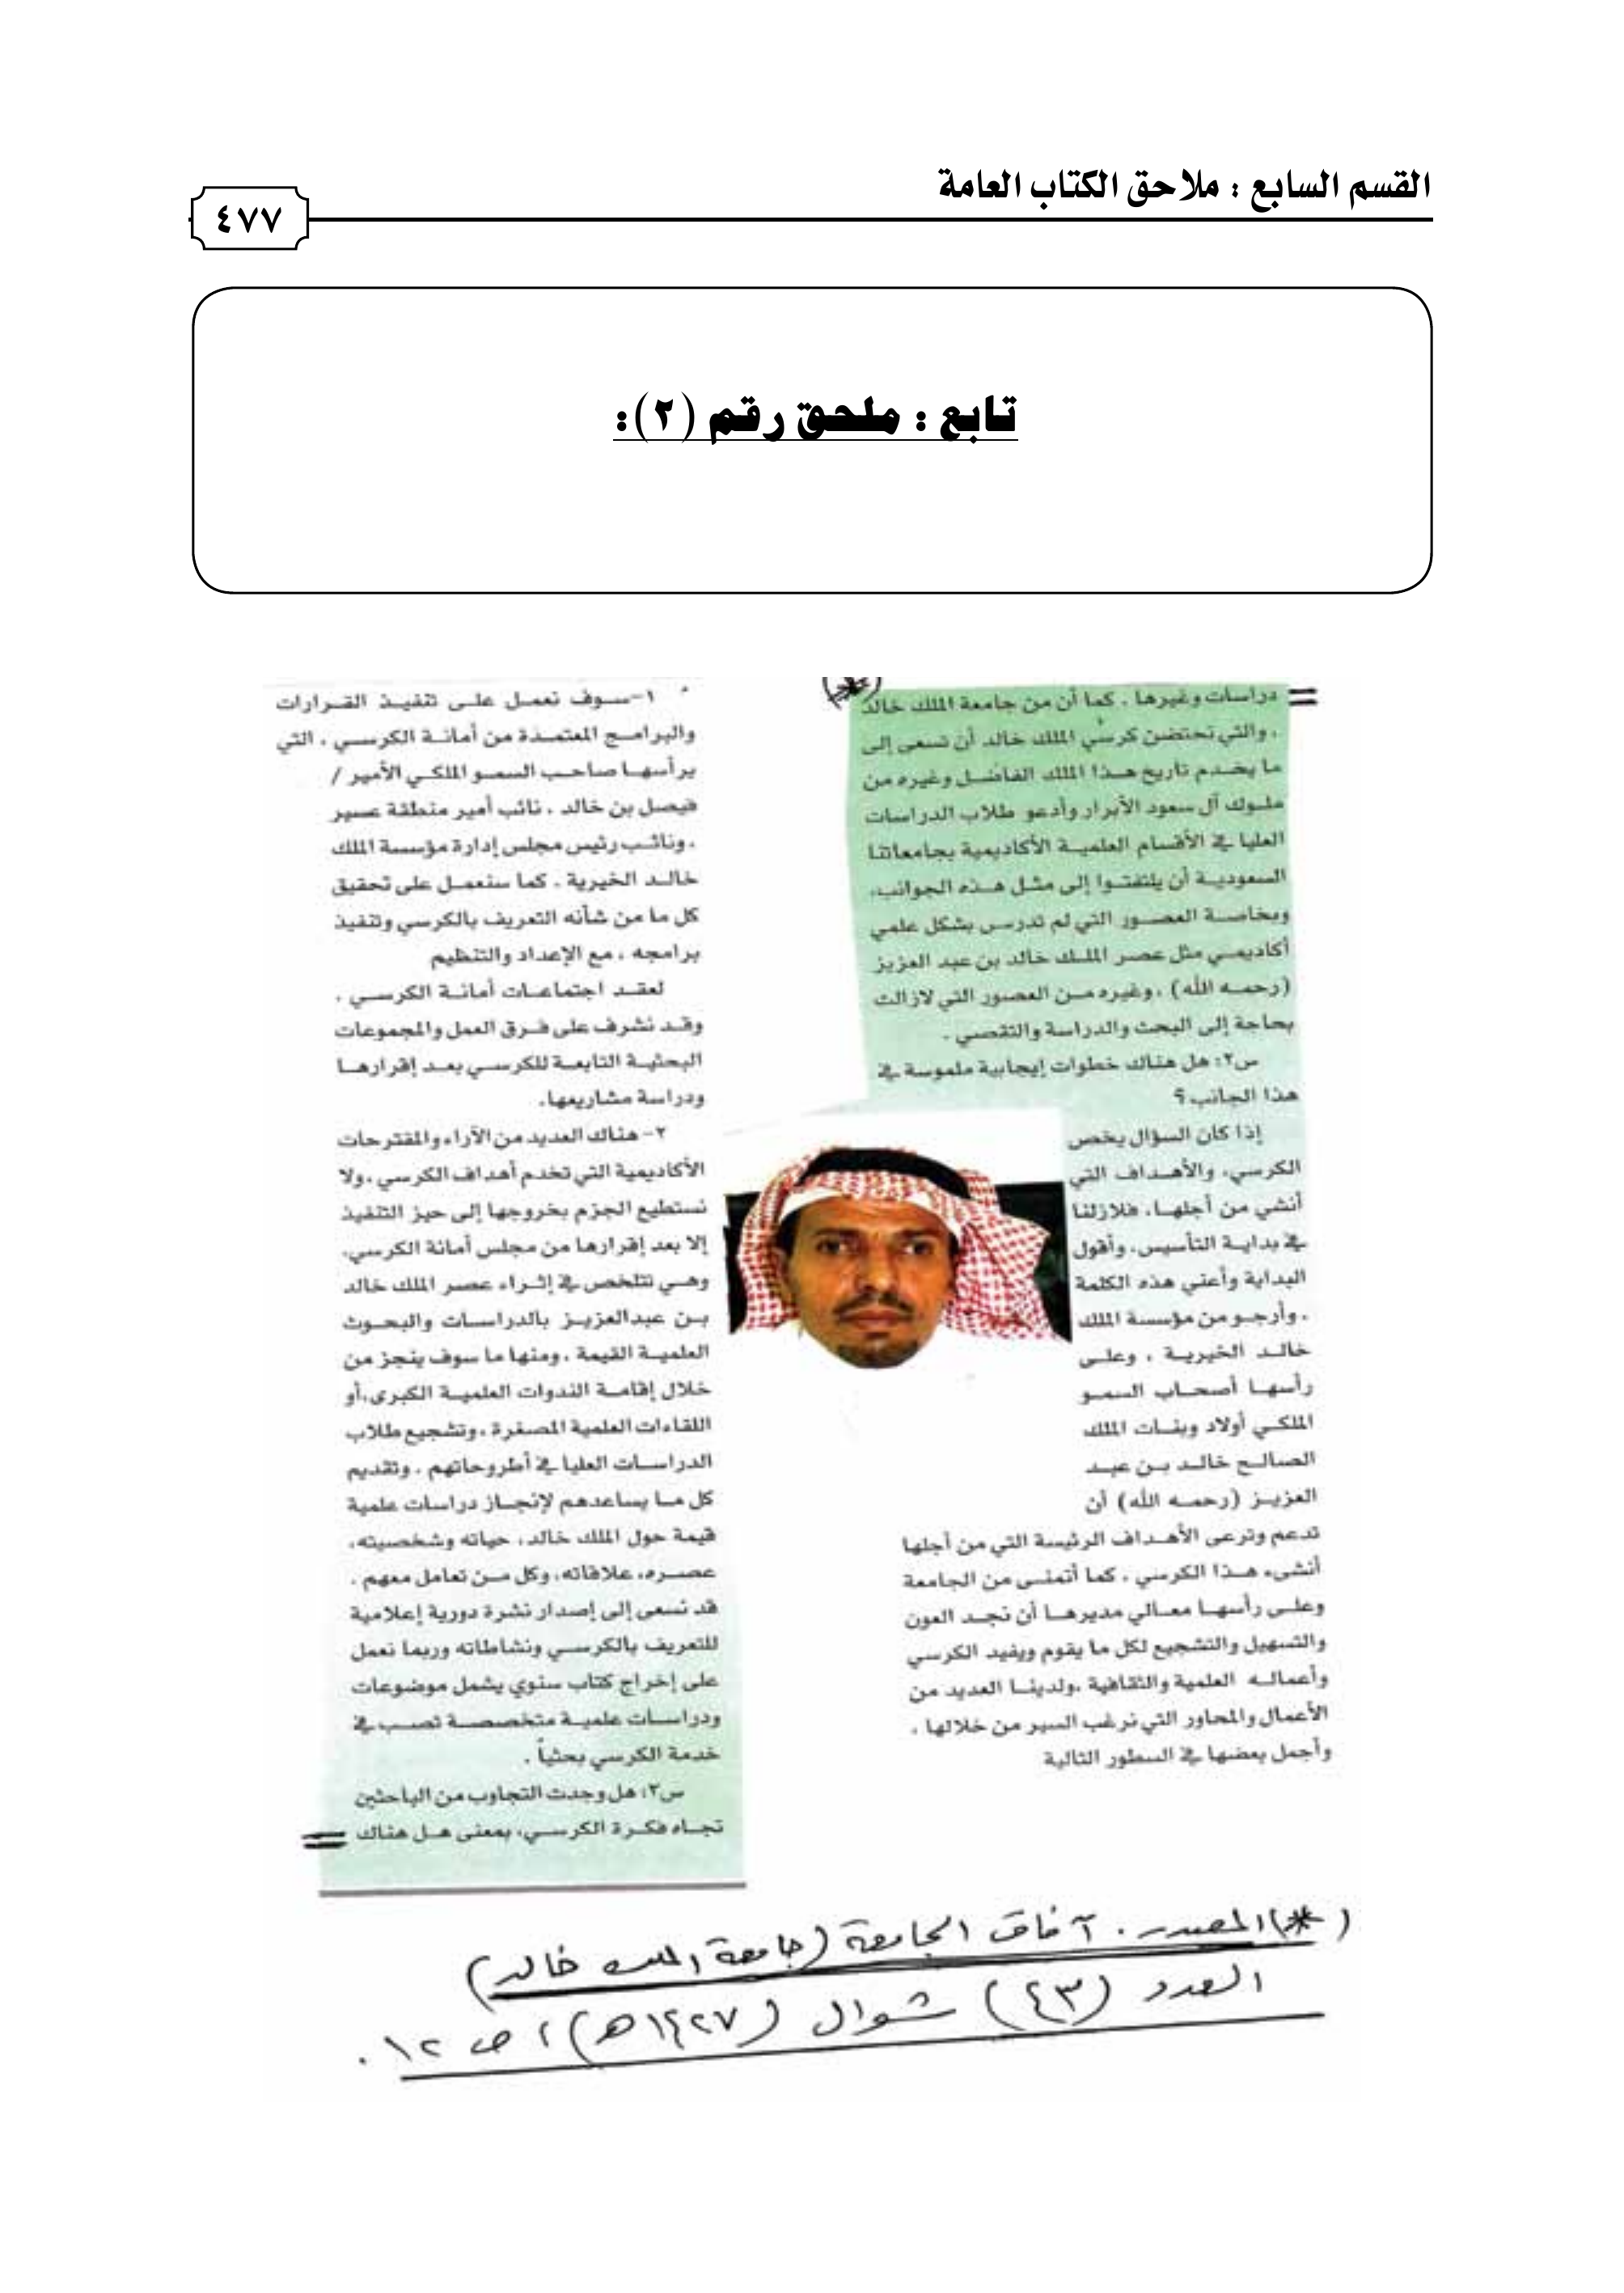 القسم السابع : ملاحق الكتاب العامة
٤٧٧
تابع : ملحق رقم (٢):
دراسات وغيرها . كما أن من جامعة الملك خالد
، والتي تحتضن كرسي الملك خالد أن تسعى إلى
ما يخدم تاريخ هذا الملك الفاضل وغيره من
ملوك آل سعود الأبرار وأدعو طلاب الدراسات
العليا في الأقسام العلمية الأكاديمية بجامعاتنا
السعودية أن يلتفتوا إلى مثل هذه الجوانب،
وبخاصة العصور التي لم تدرس بشكل علمي
أكاديمي مثل عصر الملك خالد بن عبد العزيز
(رحمه الله) ، وغيره من العصور التي لازالت
بحاجة إلى البحث والدراسة والتقصي .
س٢: هل هناك خطوات إيجابية ملموسة في
هذا الجانب؟
إذا كان السؤال يخص
الكرسي، والأهداف التي
أنشي من أجلها، فلازلنا
في بداية التأسيس، وأقول
البداية وأعني هذه الكلمة
، وأرجو من مؤسسة الملك
خالد الخيرية ، وعلى
رأسها أصحاب السمو
الملكي أولاد وبنات الملك
الصالح خالد بن عبد
العزيز (رحمه الله) أن
تدعم وترعى الأهداف الرئيسة التي من أجلها
أنشىء هذا الكرسي ، كما أتمنى من الجامعة
وعلى رأسها معالي مديرها أن نجد العون
والتسهيل والتشجيع لكل ما يقوم ويفيد الكرسي
وأعماله العلمية والثقافية ،ولدينا العديد من
الأعمال والمحاور التي نرغب السير من خلالها ،
وأجمل بعضها في السطور التالية
١-سوف نعمل على تنفيذ القرارات
والبرامج المعتمدة من أمانة الكرسي ، التي
يرأسها صاحب السمو الملكي الأمير /
فيصل بن خالد ، نائب أمير منطقة عسير
، ونائب رئيس مجلس إدارة مؤسسة الملك
خالد الخيرية ، كما سنعمل على تحقيق
كل ما من شأنه التعريف بالكرسي وتنفيذ
برامجه ، مع الإعداد والتنظيم
لعقد اجتماعات أمانة الكرسي ،
وقد نشرف على فرق العمل والمجموعات
البحثية التابعة للكرسي بعد إقرارها
ودراسة مشاريعها.
٢- هناك العديد من الآراء والمقترحات
الأكاديمية التي تخدم أهداف الكرسي ،ولا
نستطيع الجزم بخروجها إلى حيز التنفيذ
إلا بعد إقرارها من مجلس أمانة الكرسي،
وهي تتلخص في إثراء عصر الملك خالد
بن عبدالعزيز بالدراسات والبحوث
العلمية القيمة ، ومنها ما سوف ينجز من
خلال إقامة الندوات العلمية الكبرى،أو
اللقاءات العلمية المصغرة ، وتشجيع طلاب
الدراسات العليا في أطروحاتهم ، وتقديم
كل ما يساعدهم لإنجاز دراسات علمية
قيمة حول الملك خالد، حياته وشخصيته،
عصره، علاقاته، وكل من تعامل معهم .
قد نسعى إلى إصدار نشرة دورية إعلامية
للتعريف بالكرسي ونشاطاته وربما نعمل
على إخراج كتاب سنوي يشمل موضوعات
ودراسات علمية متخصصة تصب في
خدمة الكرسي بحثياً .
س٣: هل وجدت التجاوب من الباحثين
تجاه فكرة الكرسي، بمعنى هل هناك
(*) المصدر . آفاق الجامعة (جامعة الملك خالد)
العدد (٤٣) شوال (١٤٢٧هـ) ، ص ١٢ .